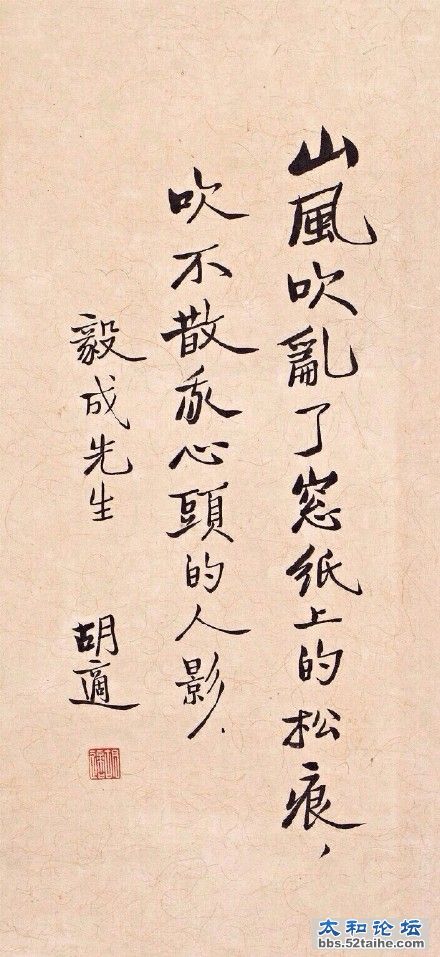 山風吹亂了窓紙上的松痕，
吹不散我心頭的人影．
毅成先生
胡適
太和论坛
bbs.52taihe.com